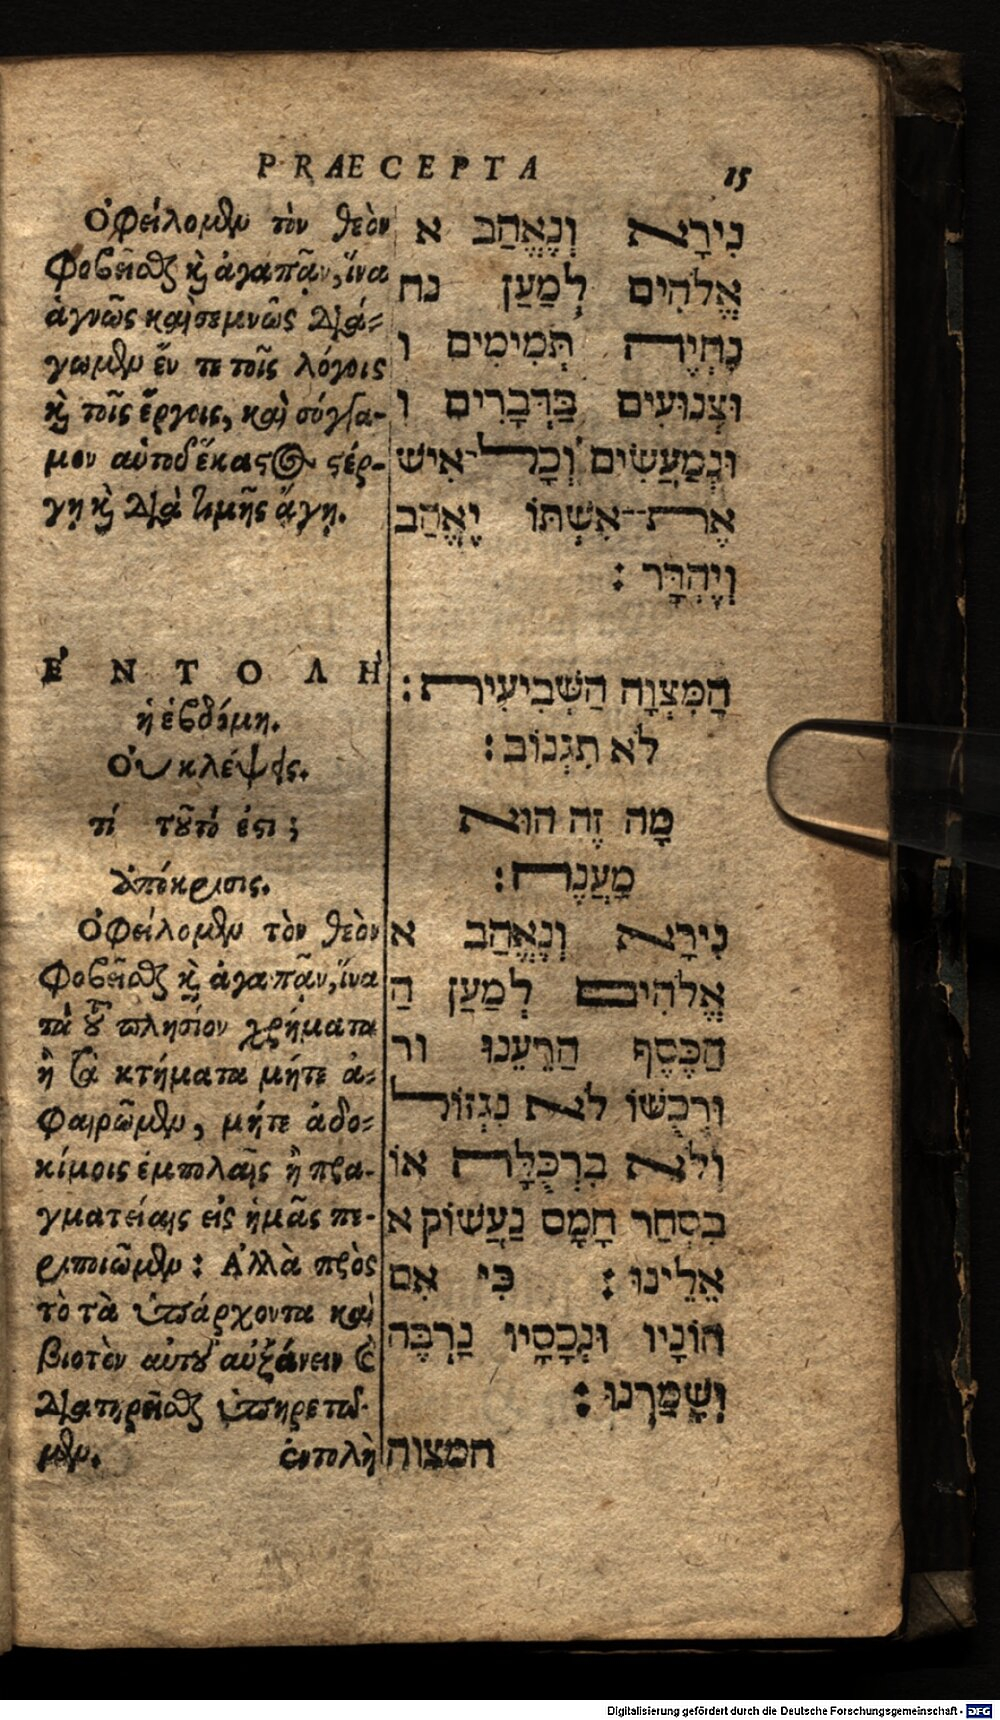 PRAECEPTA 15
Ὀφείλομεν τὸν θεὸν
φοβεῖσθαι καὶ ἀγαπᾷν, ἵνα
ἁγνῶς καὶ σεμνῶς διά-
γωμεν ἔν τε τοῖς λόγοις
καὶ τοῖς ἔργοις, καὶ σύγγα-
μον αὐτοῦ ἕκαστος στέρ-
γῃ καὶ διὰ τιμῆς ἄγῃ.
ἘΝΤΟΛῊ
ἡ ἑβδόμη.
Οὐ κλέψεις.
τί τοῦτό ἐστι;
ἀπόκρισις.
Ὀφείλομεν τὸν θεὸν
φοβεῖσθαι καὶ ἀγαπᾷν, ἵνα
τὰ τοῦ πλησίον χρήματα
ἢ τὰ κτήματα μήτε ἀ-
φαιρῶμεν, μήτε ἀδο-
κίμοις ἐμπολαῖς ἢ πρα-
γματείαις εἰς ἡμᾶς πε-
ριποιῶμεν: Ἀλλὰ πρὸς
τὸ τὰ ὑπάρχοντα καὶ
βιοτὲν αὐτοῦ αὐξάνειν καὶ
διατηρεῖσθαι ὑπηρετῶ-
μεν. ἐντολὴ
נִירָא וְנֶאֱהַב א
אֱלֹהִים לְמַעַן נח
נִחְיֶה תְּמִימִים ו
וּצְנוּעִים בַּדְּבָרִים ו
וּבְמַעֲשִׂים וְכָל־אִישׁ
אֶת־אִשְׁתּוֹ יֶאֱהַב
וִיהַדָּר :
הַמִּצְוָה הַשְּׁבִיעִית :
לֹא תִגְנוֹב :
מָה זֶה הוּא
מַעֲנֶה :
נִירָא וְנֶאֱהַב א
אֱלֹהִים לְמַעַן הַ
הַכֶּסֶף הַרֵעֵנוּ ור
וּרְכֻשׁוֹ לֹא נִגְזוֹל
וְלֹא בִרְכֻלָּה אוֹ
בִסְחַר חָמָס נַעֲשׁוֹק א
אֵלֵינוּ : כִּי אִם
הוֹנָיו וּנְכָסָיו נַרְבֶּה
וְשָׁמַרְנוּ :
המצוה